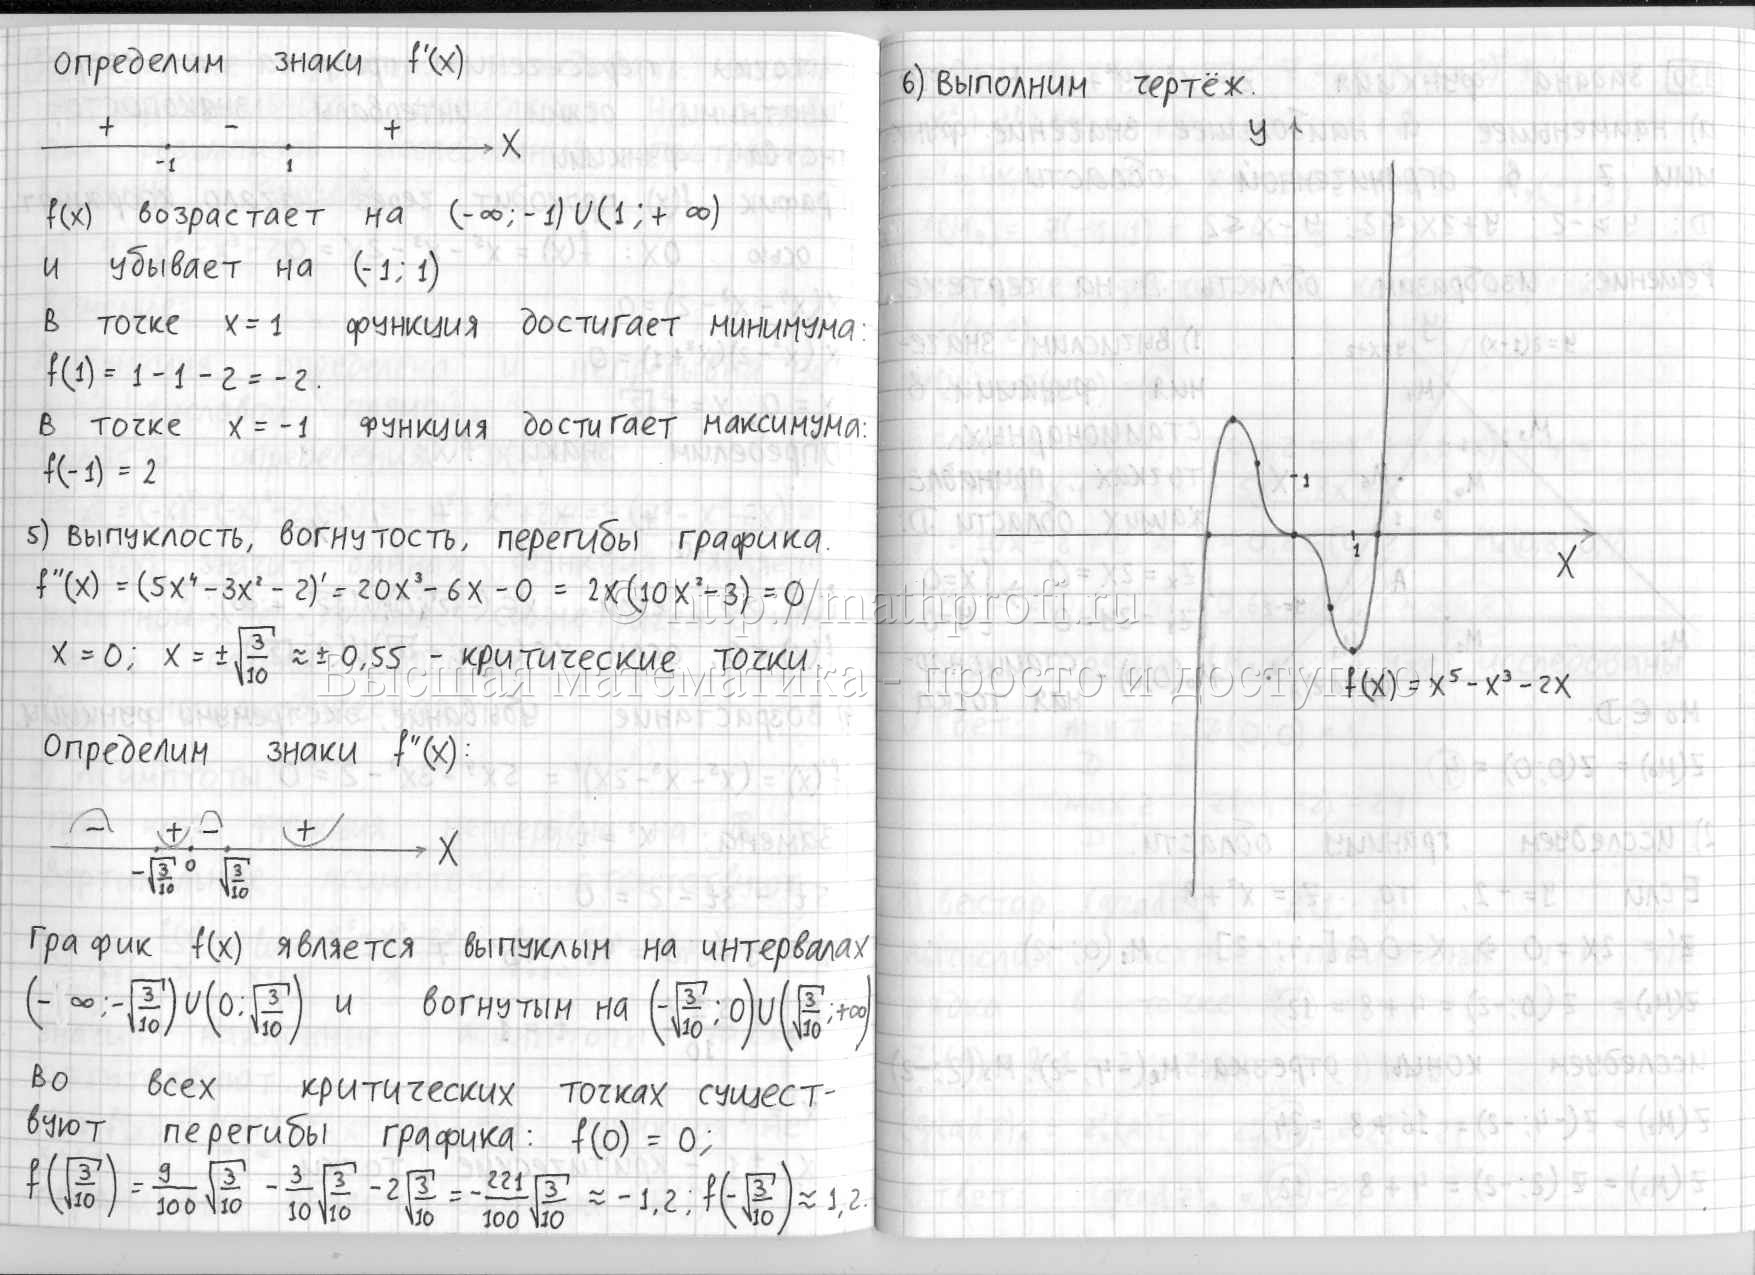 определим знаки f'(x)
+ - +
-1 1 X
f(x) возрастает на (-∞; -1) U (1; +∞)
и убывает на (-1; 1)
В точке x = 1 функция достигает минимума:
f(1) = 1 - 1 - 2 = -2.
В точке x = -1 функция достигает максимума:
f(-1) = 2
5) Выпуклость, вогнутость, перегибы графика.
f''(x) = (5x⁴ - 3x² - 2)' = 20x³ - 6x - 0 = 2x(10x² - 3) = 0
x = 0; x = ±√(3/10) ≈ ± 0,55 - критические точки
Определим знаки f''(x):
- + - +
-√(3/10) 0 √(3/10) X
График f(x) является выпуклым на интервалах
(-∞; -√(3/10)) U (0; √(3/10)) и вогнутым на (-√(3/10); 0) U (√(3/10); +∞)
Во всех критических точках сущест-
вуют перегибы графика: f(0) = 0;
f(√(3/10)) = 9/100 √(3/10) - 3/10 √(3/10) - 2√(3/10) = -221/100 √(3/10) ≈ -1,2; f(-√(3/10)) ≈ 1,2.
6) Выполним чертёж.
y
1
1
X
f(x) = x⁵ - x³ - 2x
© http://mathprofi.ru
Высшая математика - просто и доступно!